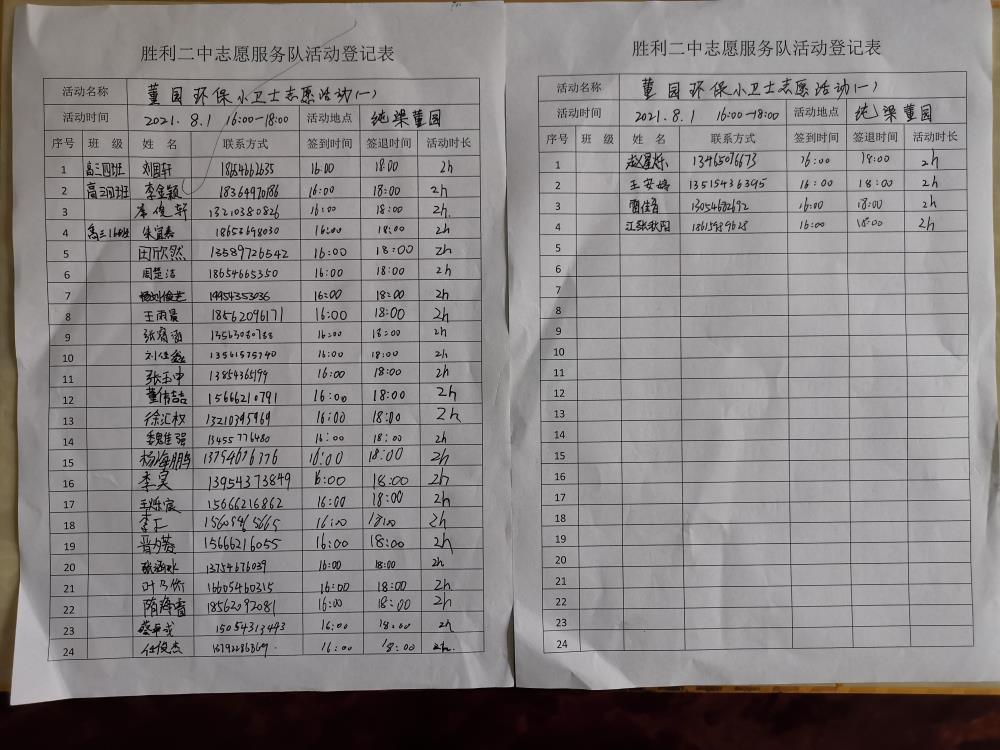 胜利二中志愿服务队活动登记表
活动名称 董园环保小卫士志愿活动(一)
活动时间 2021.8.1 16:00—18:00 活动地点 纯梁董园
序号 班 级 姓 名 联系方式 签到时间 签退时间 活动时长
1 高三四班 刘国轩 16:00 18:00 2h
2 高三四班 李金颖 18364970186 16:00 18:00 2h
3 李俊轩 13210380826 16:00 18:00 2h.
4 高三16班 朱宜春 18658698030 16:00 18:00 2h
5 田欣然 13589726542 16:00 18:00 2h
6 周楚洁 18654665350 16:00 18:00 2h
7 19954353036 16:00 18:00 2h
8 王雨晨 18562096171 16:00 18:00 2h
9 16:00 18:00 2h
10 刘佳鑫 13561575740 16:00 18:00 2h
11 张玉中 13854365199 16:00 18:00 2h
12 董倩喆 15666210791 16:00 18:00 2h
13 徐汇权 13210395969 16:00 18:00 2h
14 魏佳强 13455776480 16:00 18:00 2h
15 杨海鹏 13754676776 16:00 18:00 2h
16 李昊 13954373849 16:00 18:00 2h
17 王烁宸 15066216862 16:00 18:00 2h
18 16:00 18:00 2h
19 15666216055 16:00 18:00 2h
20 13754676039 16:00 18:00 2h
21 16605460315 16:00 18:00 2h
22 18562092081 16:00 18:00 2h
23 15054313493 16:00 18:00 2h
24 任俊杰 16:00 18:00 2h.
胜利二中志愿服务队活动登记表
活动名称 董园环保小卫士志愿活动(一)
活动时间 2021.8.1 16:00—18:00 活动地点 纯梁董园
序号 班 级 姓 名 联系方式 签到时间 签退时间 活动时长
1 13465076673 16:00 18:00 2h
2 王安婷 13515436395 16:00 18:00 2h
3 13054682692 16:00 18:00 2h
4 江张秋阳 18615989628 16:00 18:00 2h
5
6
7
8
9
10
11
12
13
14
15
16
17
18
19
20
21
22
23
24